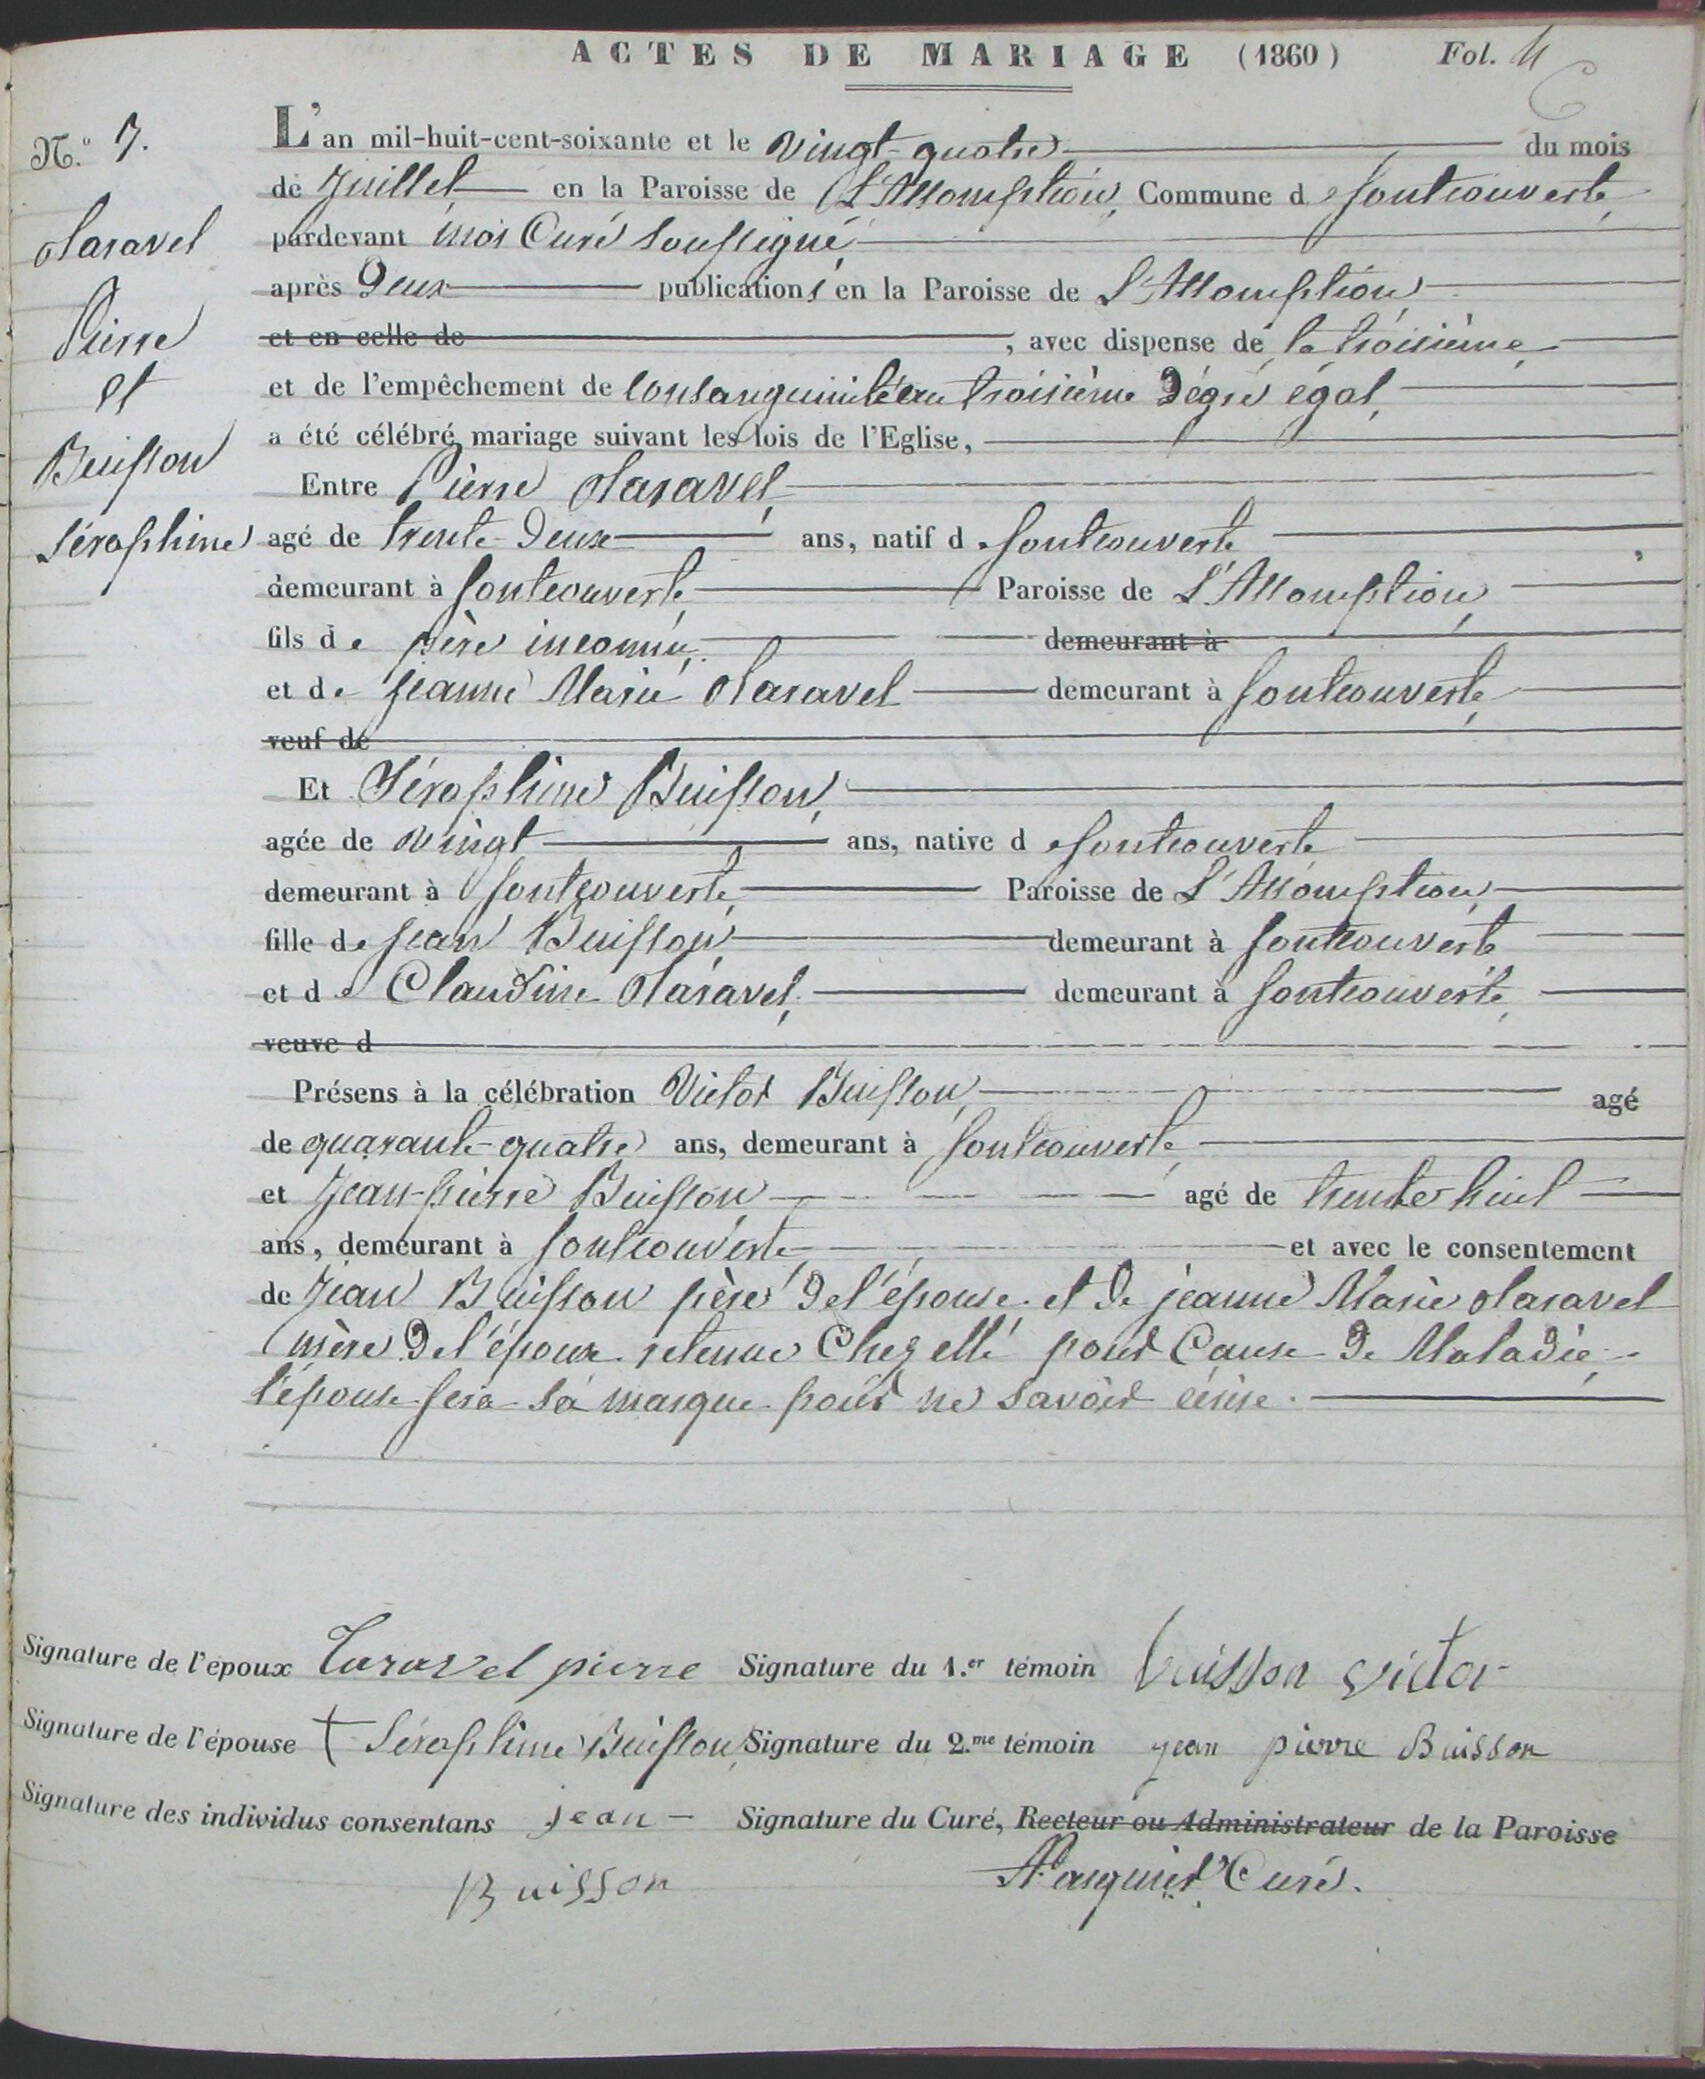 ACTES DE MARIAGE (1860) Fol. 4
N.º 7.
Taravel
Pierre
et
Buisson
Séraphine
L'an mil-huit-cent-soixante et le vingt-quatre du mois
de Juillet en la Paroisse de L'Assomption, Commune de fontcouverte
pardevant moi Curé soussigné,
après Deux publications en la Paroisse de L'Assomption
et en celle de , avec dispense de la troisième
et de l'empêchement de consanguinité au troisième Dégré égal,
a été célébré mariage suivant les lois de l'Eglise,
Entre Pierre Taravel,
agé de trente-Deux ans, natif de fontcouverte
demeurant à fontcouverte, Paroisse de L'Assomption,
fils de père inconnu, demeurant à
et de jeanne Marie Taravel demeurant à fontcouverte,
veuf de
Et Séraphine Buisson,
agée de vingt ans, native de fontcouverte
demeurant à fontcouverte, Paroisse de L'Assomption,
fille de jean Buisson, demeurant à fontcouverte
et de Claudine Taravel, demeurant à fontcouverte,
veuve d
Présens à la célébration Victor Buisson, agé
de quarante-quatre ans, demeurant à fontcouverte,
et Jean-pierre Buisson agé de trente huit
ans, demeurant à fontcouverte, et avec le consentement
de Jean Buisson père de l'épouse et de jeanne Marie Taravel
mère de l'époux retenue Chez elle pour Cause de Maladie,
l'épouse fera sa marque pour ne savoir écrire.
Signature de l'époux Taravel pierre Signature du 1.er témoin buisson victor
Signature de l'épouse † Séraphine Buisson, Signature du 2.me témoin jean pierre Buisson
Signature des individus consentans jean - Signature du Curé, Recteur ou Administrateur de la Paroisse
Buisson Curé.